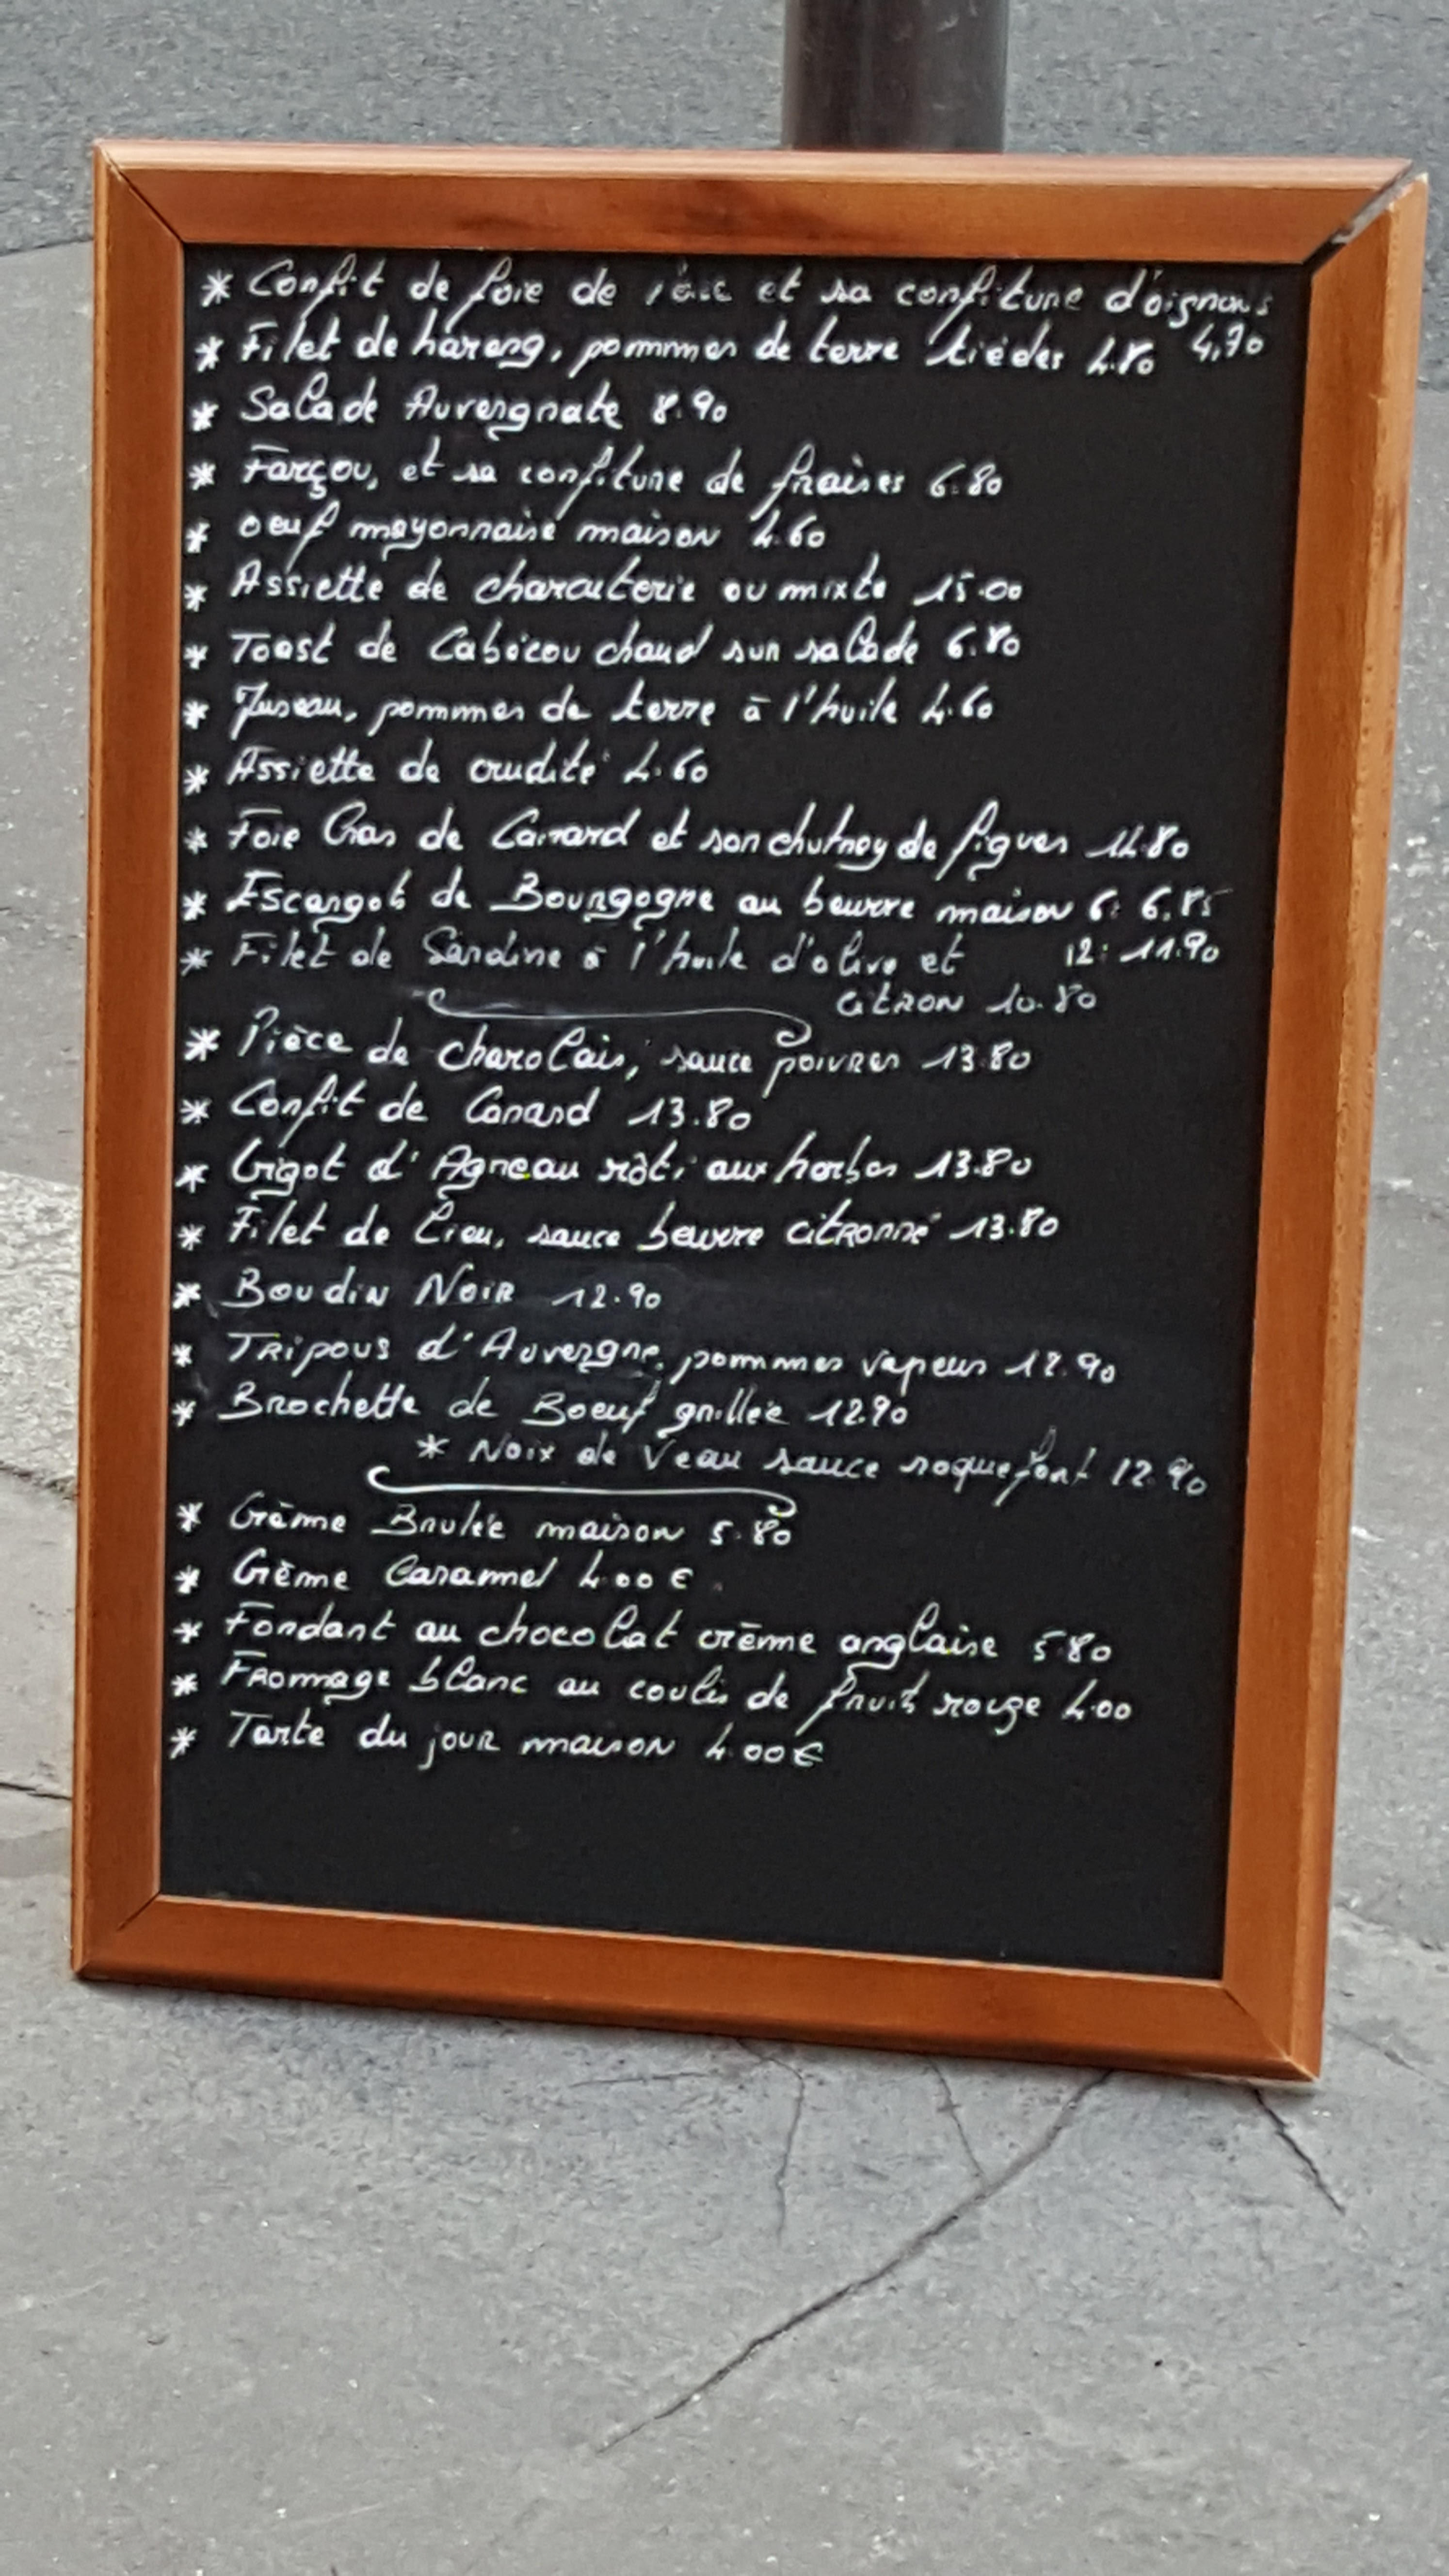 * Confit de foie de et sa confiture d'oignons
* Filet de hareng, pommes de terre tièdes 4.80 4,70
* Salade Auvergnate 8.90
* Farçou, et sa confiture de fraises 6.80
* oeuf mayonnaise maison 4.60
* Assiette de charcuterie ou mixte 15.00
* Toast de Cabécou chaud sur salade 6.80
* Museau, pommes de terre à l'huile 4.60
* Assiette de crudité 4.60
* Foie Gras de Canard et son chutney de figues
* Escargots de Bourgogne au beurre maison 6: 6.85
* Filet de Sardine à l'huile d'olive et 12: 11.90
citron 10.80
* Pièce de charolais, sauce poivres 13.80
* Confit de Canard 13.80
* Gigot d'Agneau rôti aux herbes 13.80
* Filet de Lieu, sauce beurre citronné 13.80
* Boudin Noir 12.90
* Tripous d'Auvergne, pommes vapeur 12.90
* Brochette de Boeuf grillée 12.90
* Noix de Veau sauce roquefort 12.90
* Crème Brulée maison 5.80
* Crème Caramel 4.00 €
* Fondant au chocolat crème anglaise 5.80
* Fromage blanc au coulis de fruits rouge 4.00
* Tarte du jour maison 4.00 €